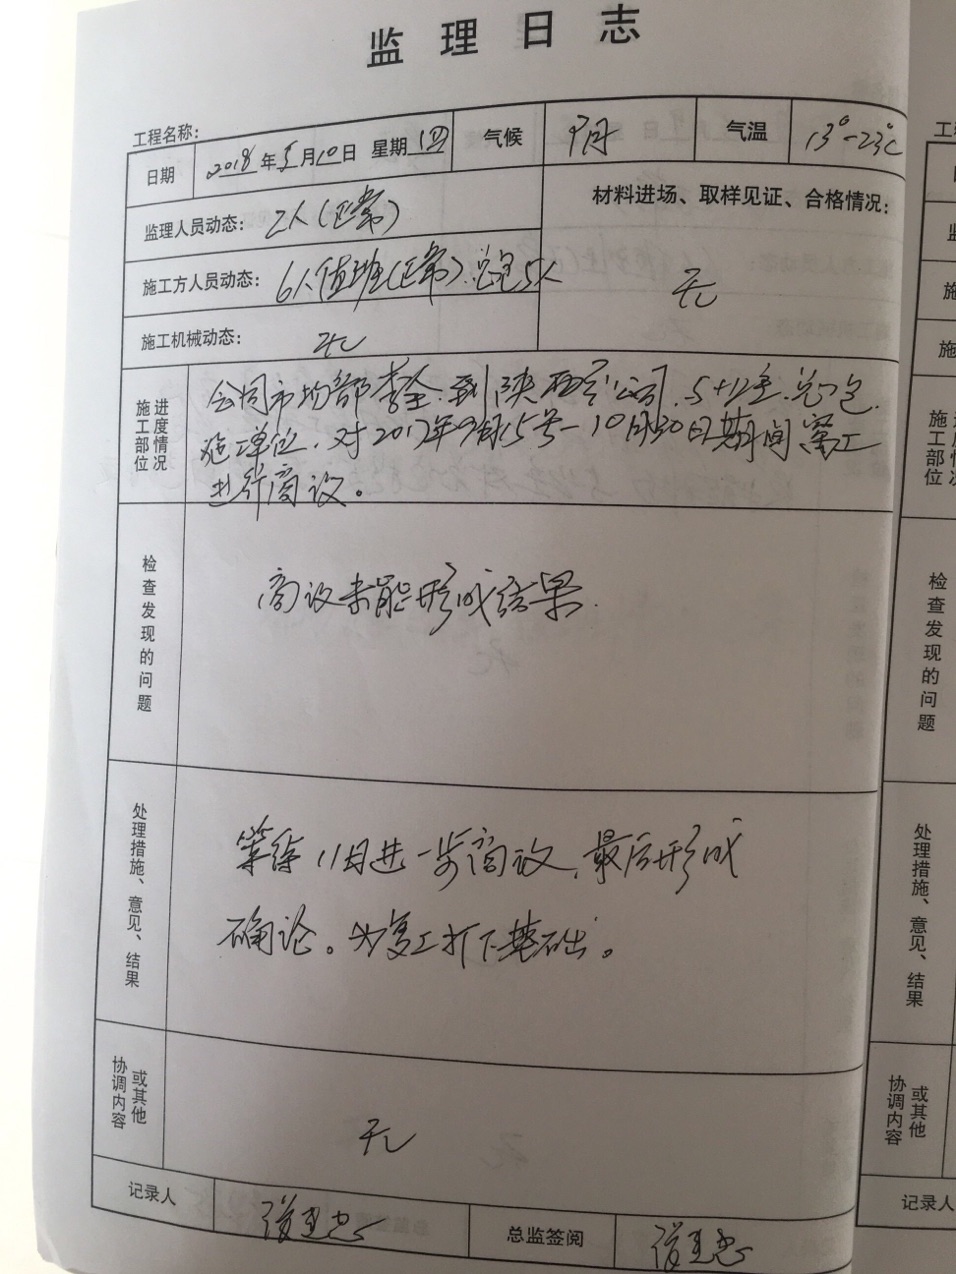 监理日志
工程名称：
日期 2018年5月10日 星期四 气候 阴 气温 13°-23℃
监理人员动态： 2人（正常）
材料进场、取样见证、合格情况：
施工方人员动态： 6人值班（正常）、总包5人
无
施工机械动态： 无
施工部位进度情况
会同市场部 到陕西 公司、 总包
施工单位、对2017年9月15号-10月30日期间窝工
进行商议。
检查发现的问题
商议未能形成结果.
处理措施、意见、结果
等待11日进一步商议，最后形成
确论。为复工打下基础。
协调内容或其他
无
记录人
总监签阅
工
施
施工部位
检查发现的问题
处理措施、意见、结果
协调内容或其他
记录人